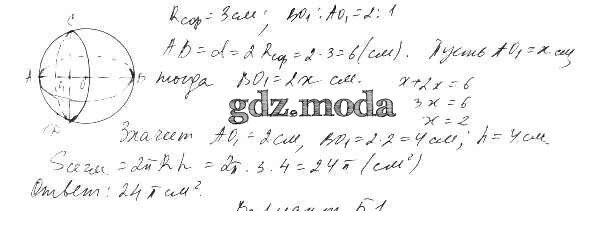 Rсф = 3 см; BO₁ : AO₁ = 2 : 1
AB = d = 2 Rсф = 2 · 3 = 6 (см). Пусть AO₁ = x см,
тогда BO₁ = 2x см.
x + 2x = 6
3x = 6
x = 2
gdz.moda
Значит AO₁ = 2 см, BO₁ = 2 · 2 = 4 см; h = 4 см.
Sсегм = 2πRh = 2π · 3 · 4 = 24π (см²)
Ответ: 24π см².
C
A O B
Вариант Б1